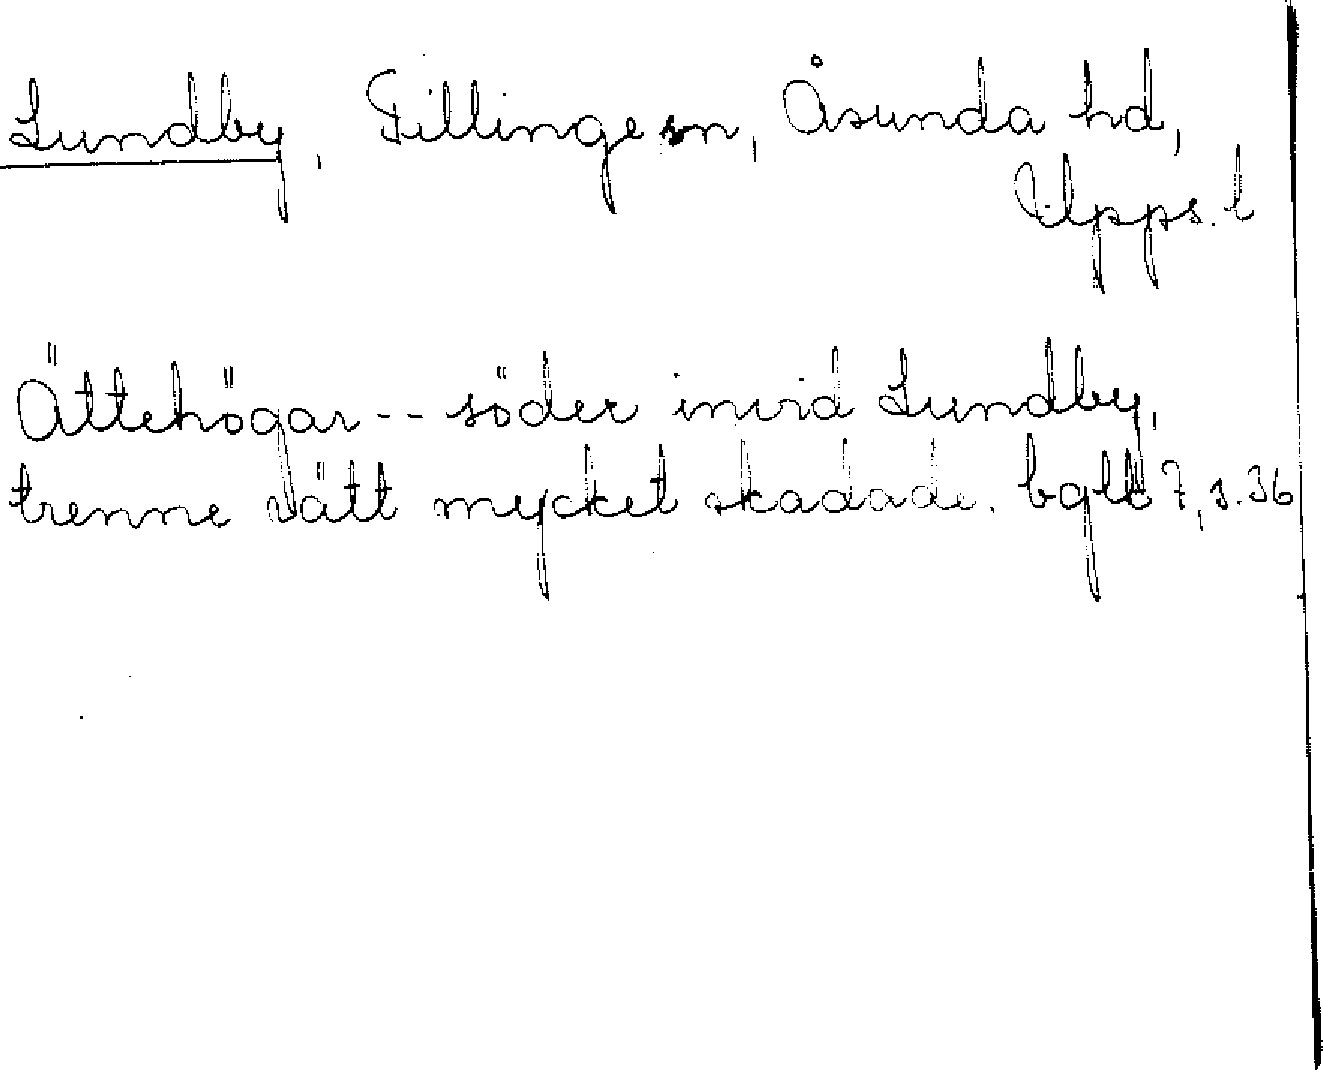 Lundby, Tillinge sn, Åsunda hd,
Upps. l
Ättehögar -- söder invid Lundby,
trenne rätt mycket skadade. 7, s. 36